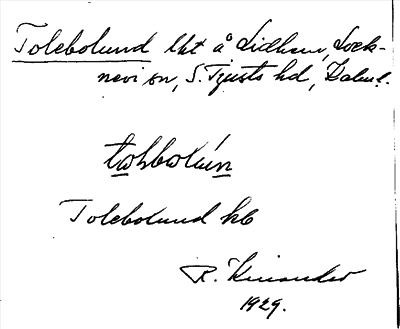 Tolebolund lht å Lidhem, Lock-
nevi sn, S. Tjusts hd, Kalm l.
Tolebolund hb
R. Kinander
1929.